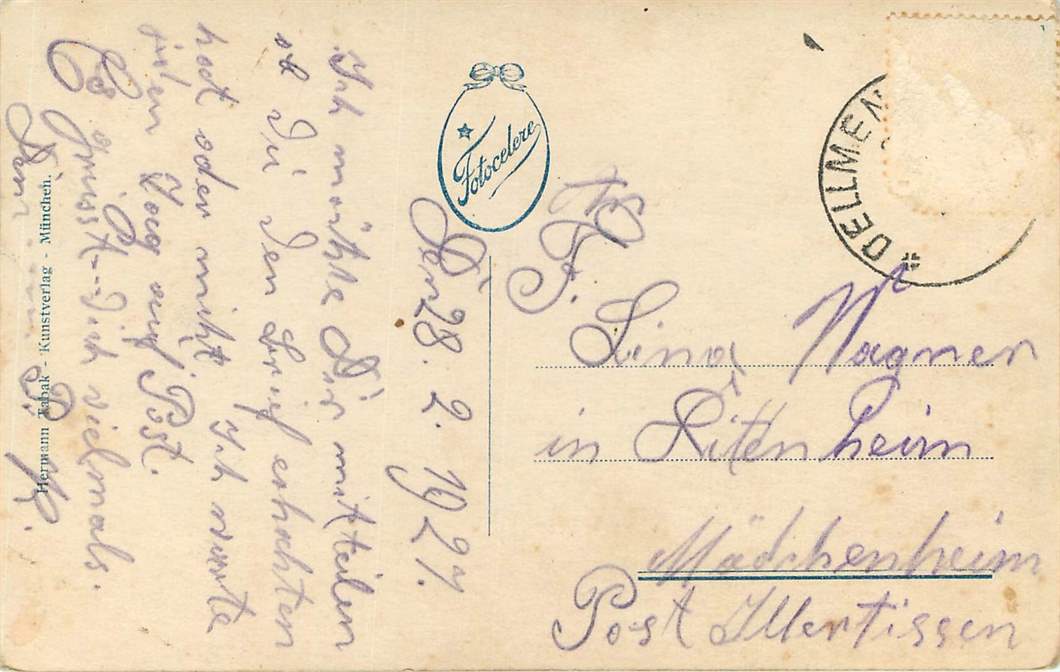 Den 28. 2. 1927.
Ich möchte Dir mitteilen
ob Du den Brief erhalten
hast oder nicht. Ich warte
jeden Tag auf Post.
Es grüsst Dich vielmals.
Dein
B. K.
Hermann Tabak - Kunstverlag - München.
Fotocelere
DELLMEN
An
F.
Lina Wagner
in Rittenheim
Mädchenheim
Post Illertissen